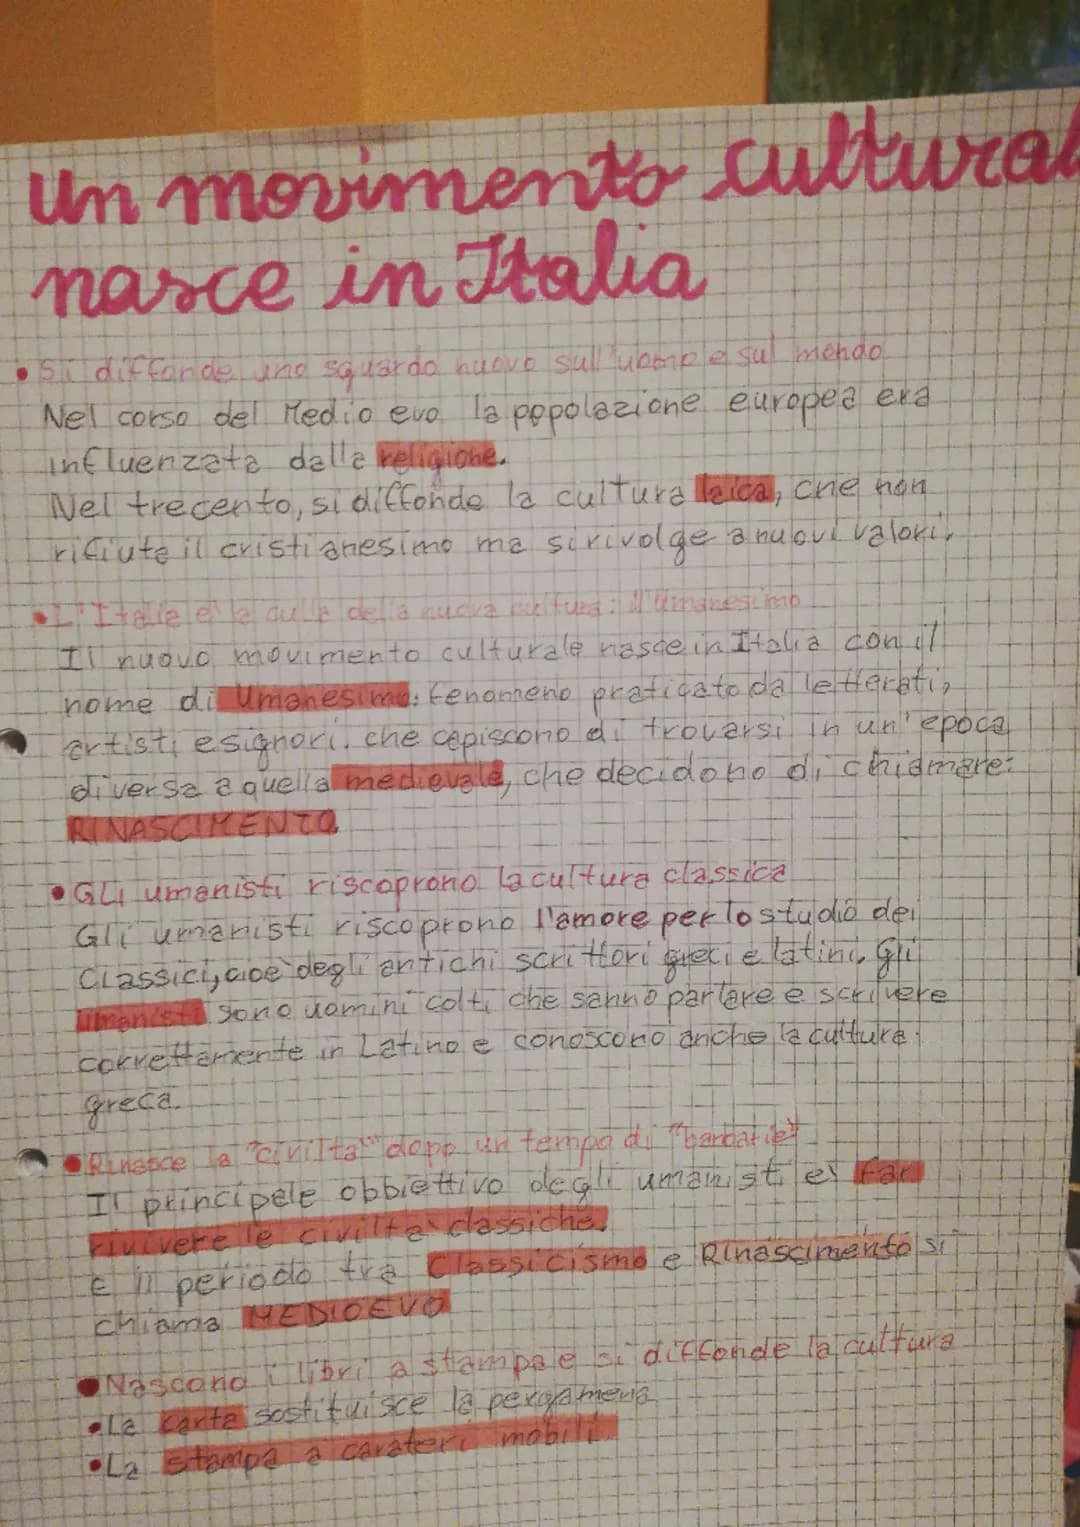 Un movimento cultural
nasce in Italia
• Si diffonde uno sguardo nuovo sull'uomo e sul mondo
Nel corso del Medio evo la popolazione europea era
influenzata dalla religione.
Nel trecento, si diffonde la cultura laica, che non
rifiuta il cristianesimo ma si rivolge a nuovi valori.
• L'Italia e' la culla della nuova cultura: l'umanesimo
Il nuovo movimento culturale nasce in Italia con il
nome di Umanesimo: fenomeno praticato da letterati,
artisti e signori. che capiscono di trovarsi in un'epoca
diversa a quella medievale, che decidono di chiamare:
RINASCIMENTO
• Gli umanisti riscoprono la cultura classica
Gli umanisti riscoprono l'amore per lo studio dei
Classici, cioe' degli antichi scrittori greci e latini. Gli
umanisti sono uomini colti che sanno parlare e scrivere
correttamente in Latino e conoscono anche la cultura
greca.
• Rinasce la "civilta'" dopo un tempo di "barbarie"
Il principale obbiettivo degli umanisti e' far
rivivere le civilta' classiche.
E il periodo tra Classicismo e Rinascimento si
chiama MEDIOEVO
• Nascono i libri a stampa e si diffonde la cultura
• La carta sostituisce la pergamena
• La stampa a carateri mobili.